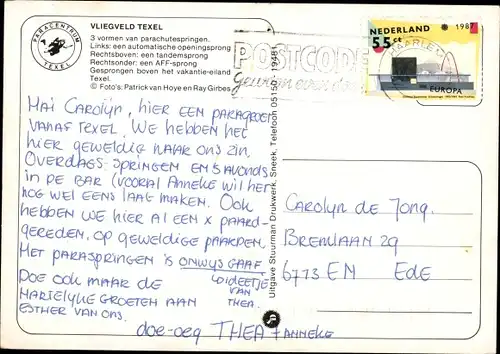 PARACENTRUM TEXEL
VLIEGVELD TEXEL
3 vormen van parachutespringen.
Links: een automatische openingsprong
Rechtsboven: een tandemsprong
Rechtsonder: een AFF-sprong
Gesprongen boven het vakantie-eiland
Texel.
© Foto's: Patrick van Hoye en Ray Girbes
POSTCODE
Gewoon even doen
HAARLEM
NEDERLAND 1987
55 ct
EUROPA
HAI CAROLYN, HIER EEN PARAGROEN
VANAF TEXEL. WE HEBBEN HET
HIER GEWELDIG NAAR ONS ZIN.
OVERDAGS SPRINGEN EN 'S AVONDS
IN DE BAR (VOORAL ANNEKE WIL HET
NOG WEL EENS LAAT MAKEN. OOK
HEBBEN WE HIER AL EEN X PAARD-
GEREDEN, OP GEWELDIGE PAARDEN.
HET PARASPRINGEN IS ONWYS GAAF
DOE OOK MAAR DE
HARTELYKE GROETEN AAN
ESTHER VAN ONS.
IDEETJE
VAN
THEA.
doe-oeg THEA ANNEKE
Uitgave Stuurman Drukwerk, Sneek, Telefoon 05150 - 19481
CAROLYN DE JONG.
BREMLAAN 29
6713 EM EDE